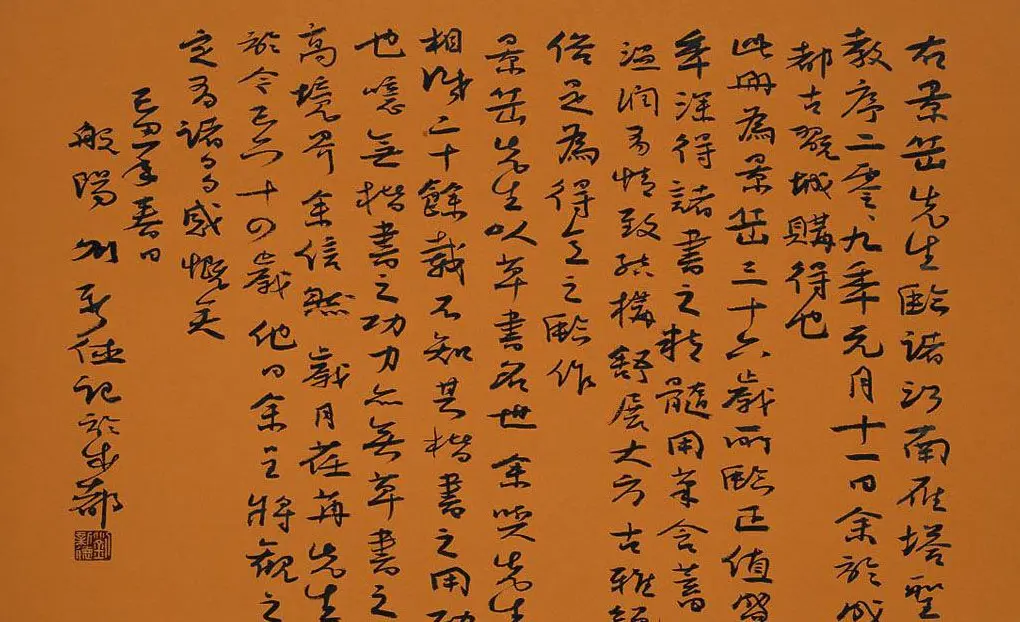 右景岳先生臨诸河南雁塔聖
教序二零零九年元月十一日余於成
都古玩城購得也
此冊為景岳三十六歲所臨正值盛
年深得諸書之精髓用筆含蓄
温润有情致结構舒展大方古雅
俗是為得意之臨作
景岳先生以草書名世余與先生
相识二十餘載不知其楷書之用功
也噫無楷書之功力亦無草書之
高境界余信然歲月荏苒先生
於今已六十四歲他日余呈將觀之
定有諸多感慨矣
己丑年春日
般陽劉新德記於成都
劉新德